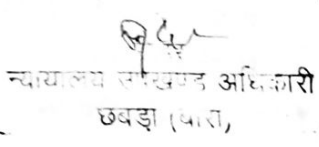 न्यायालय उपखण्ड अधिकारी
छबड़ा (बारां)